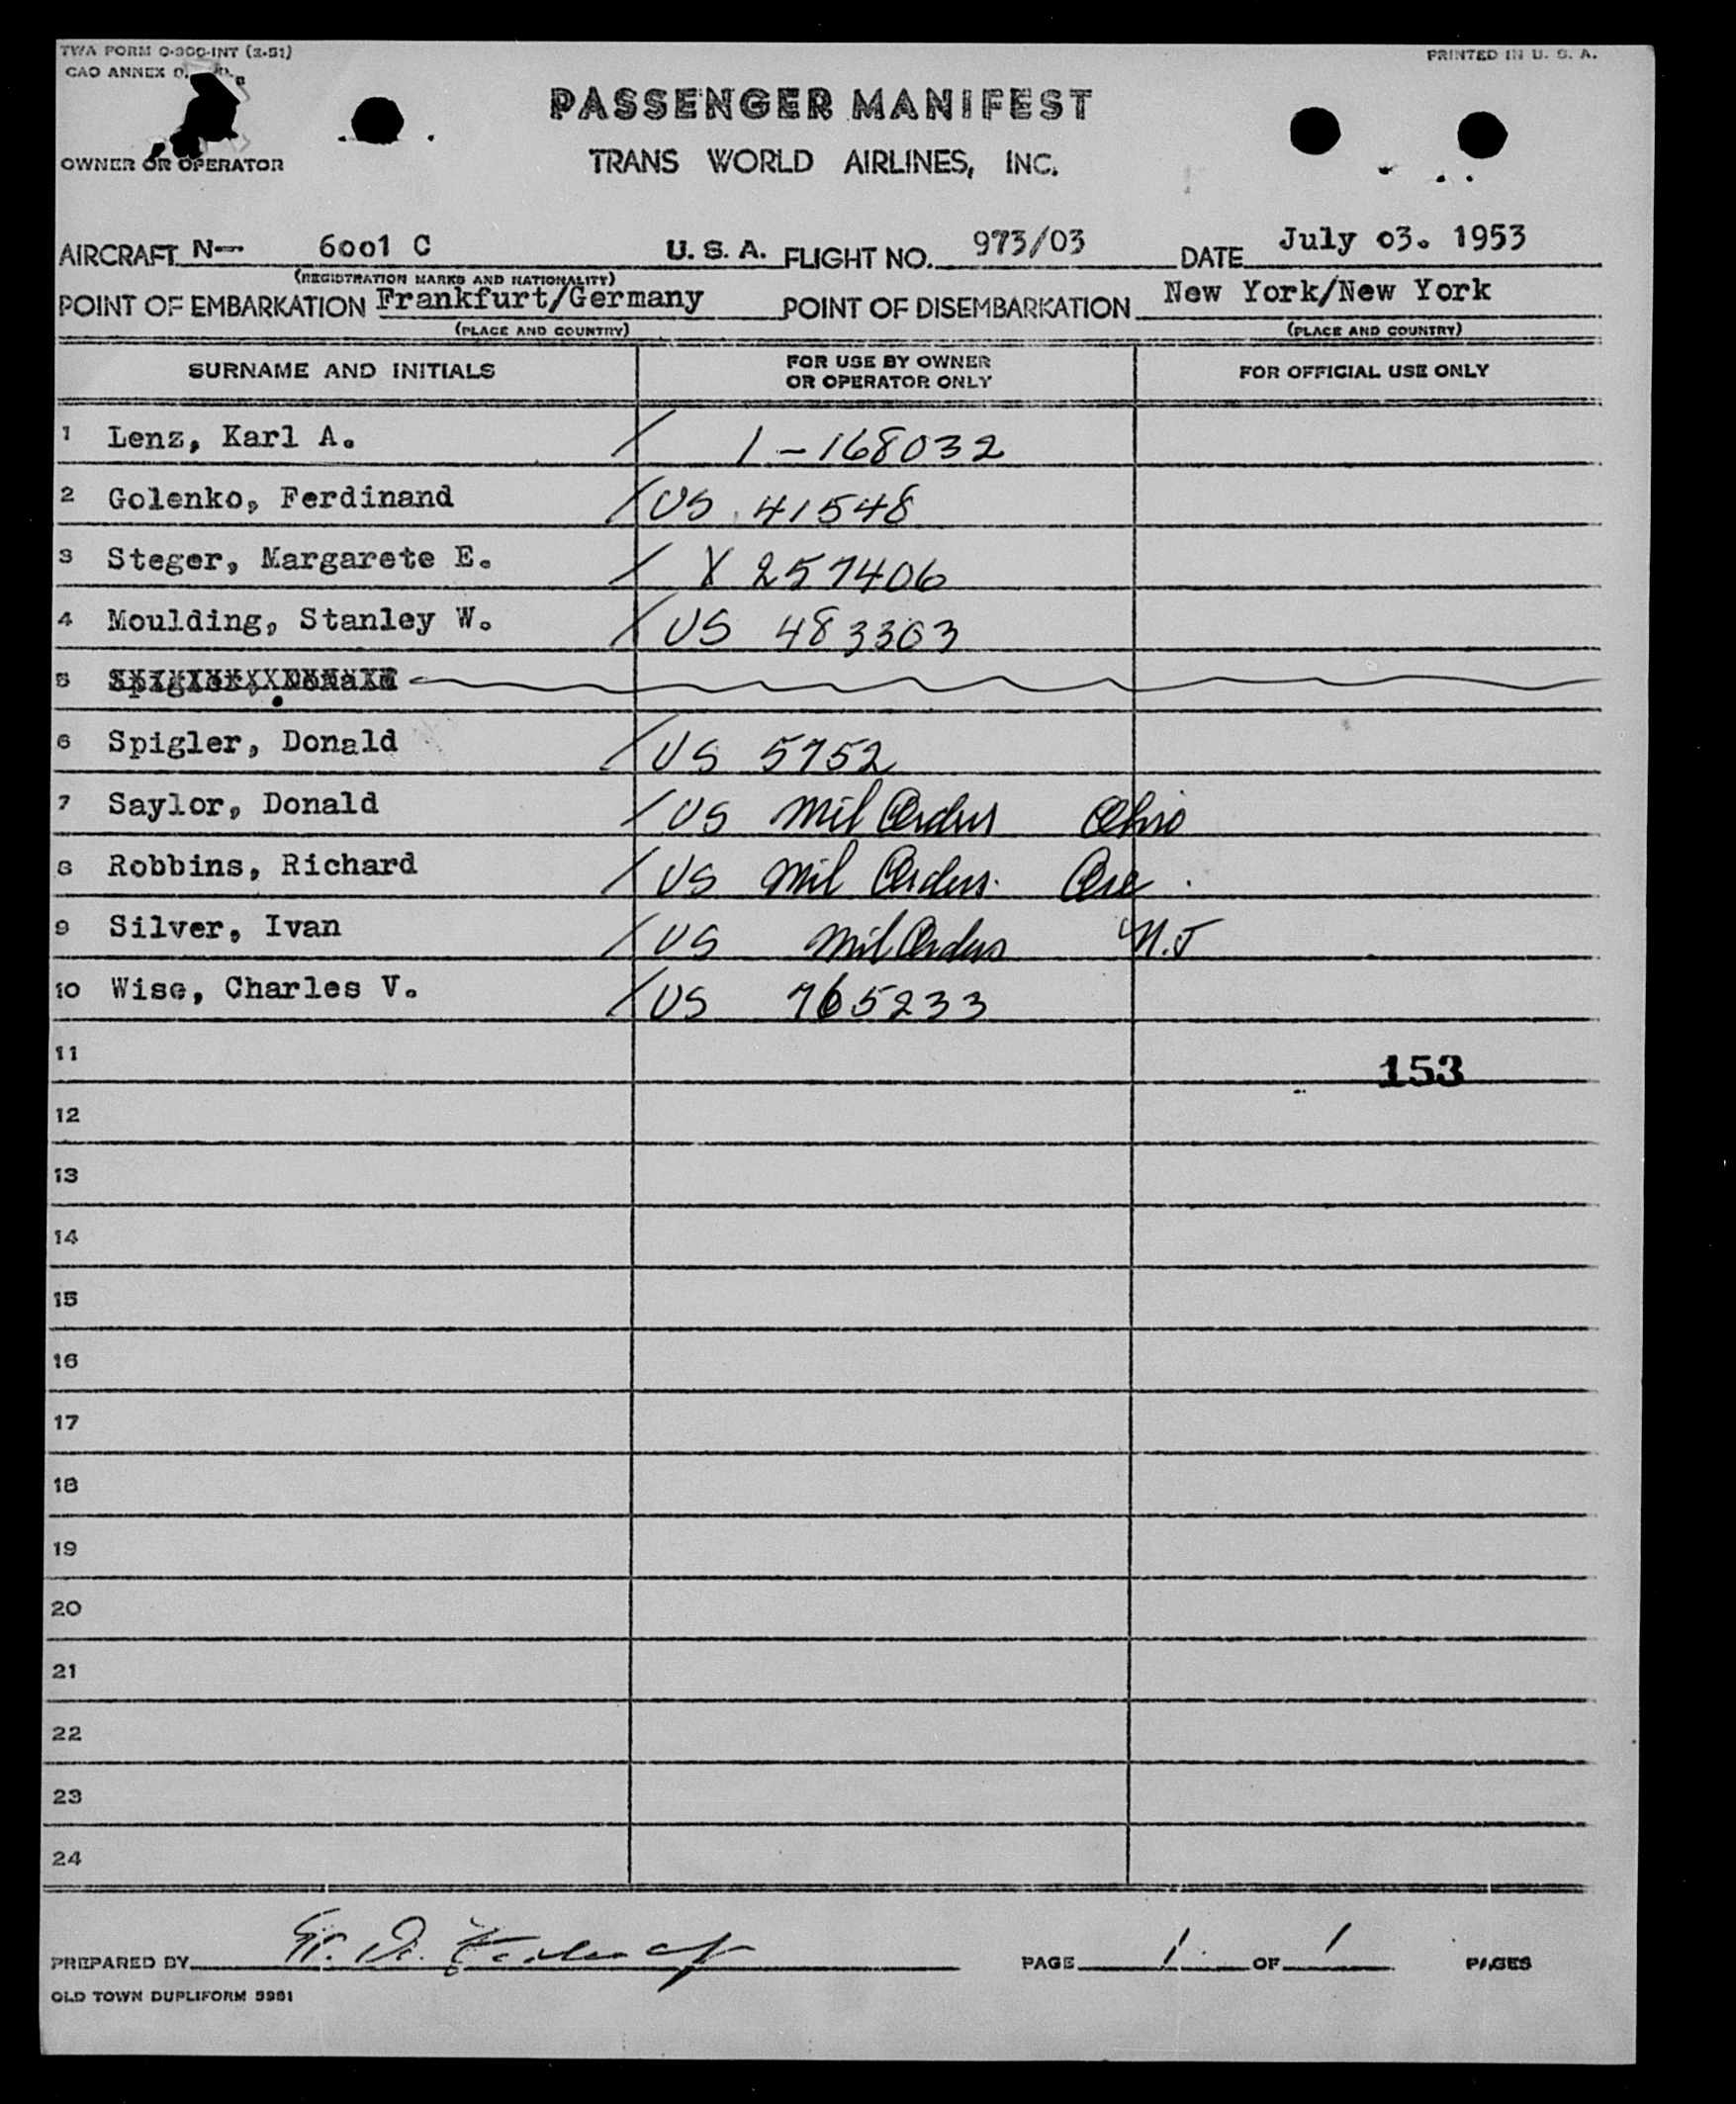 TWA FORM O-300-INT (2-51)
PRINTED IN U. S. A.
CAO ANNEX
OWNER OR OPERATOR
PASSENGER MANIFEST
TRANS WORLD AIRLINES, INC.
AIRCRAFT N- 6001 C U. S. A. FLIGHT NO. 973/03 DATE July 03. 1953
(REGISTRATION MARKS AND NATIONALITY)
POINT OF EMBARKATION Frankfurt/Germany POINT OF DISEMBARKATION New York/New York
(PLACE AND COUNTRY) (PLACE AND COUNTRY)
SURNAME AND INITIALS FOR USE BY OWNER OR OPERATOR ONLY FOR OFFICIAL USE ONLY
1 Lenz, Karl A. / 1-168032
2 Golenko, Ferdinand / US 41548
3 Steger, Margarete E. / X 257406
4 Moulding, Stanley W. / US 483303
5 Spigler, Donald
6 Spigler, Donald / US 5752
7 Saylor, Donald / US Mil Orders Ohio
8 Robbins, Richard / US Mil Orders.
9 Silver, Ivan / US Mil Orders N.J
10 Wise, Charles V. / US 765233
11 153
12
13
14
15
16
17
18
19
20
21
22
23
24
PREPARED BY PAGE 1 OF 1 PAGES
OLD TOWN DUPLIFORM 9981